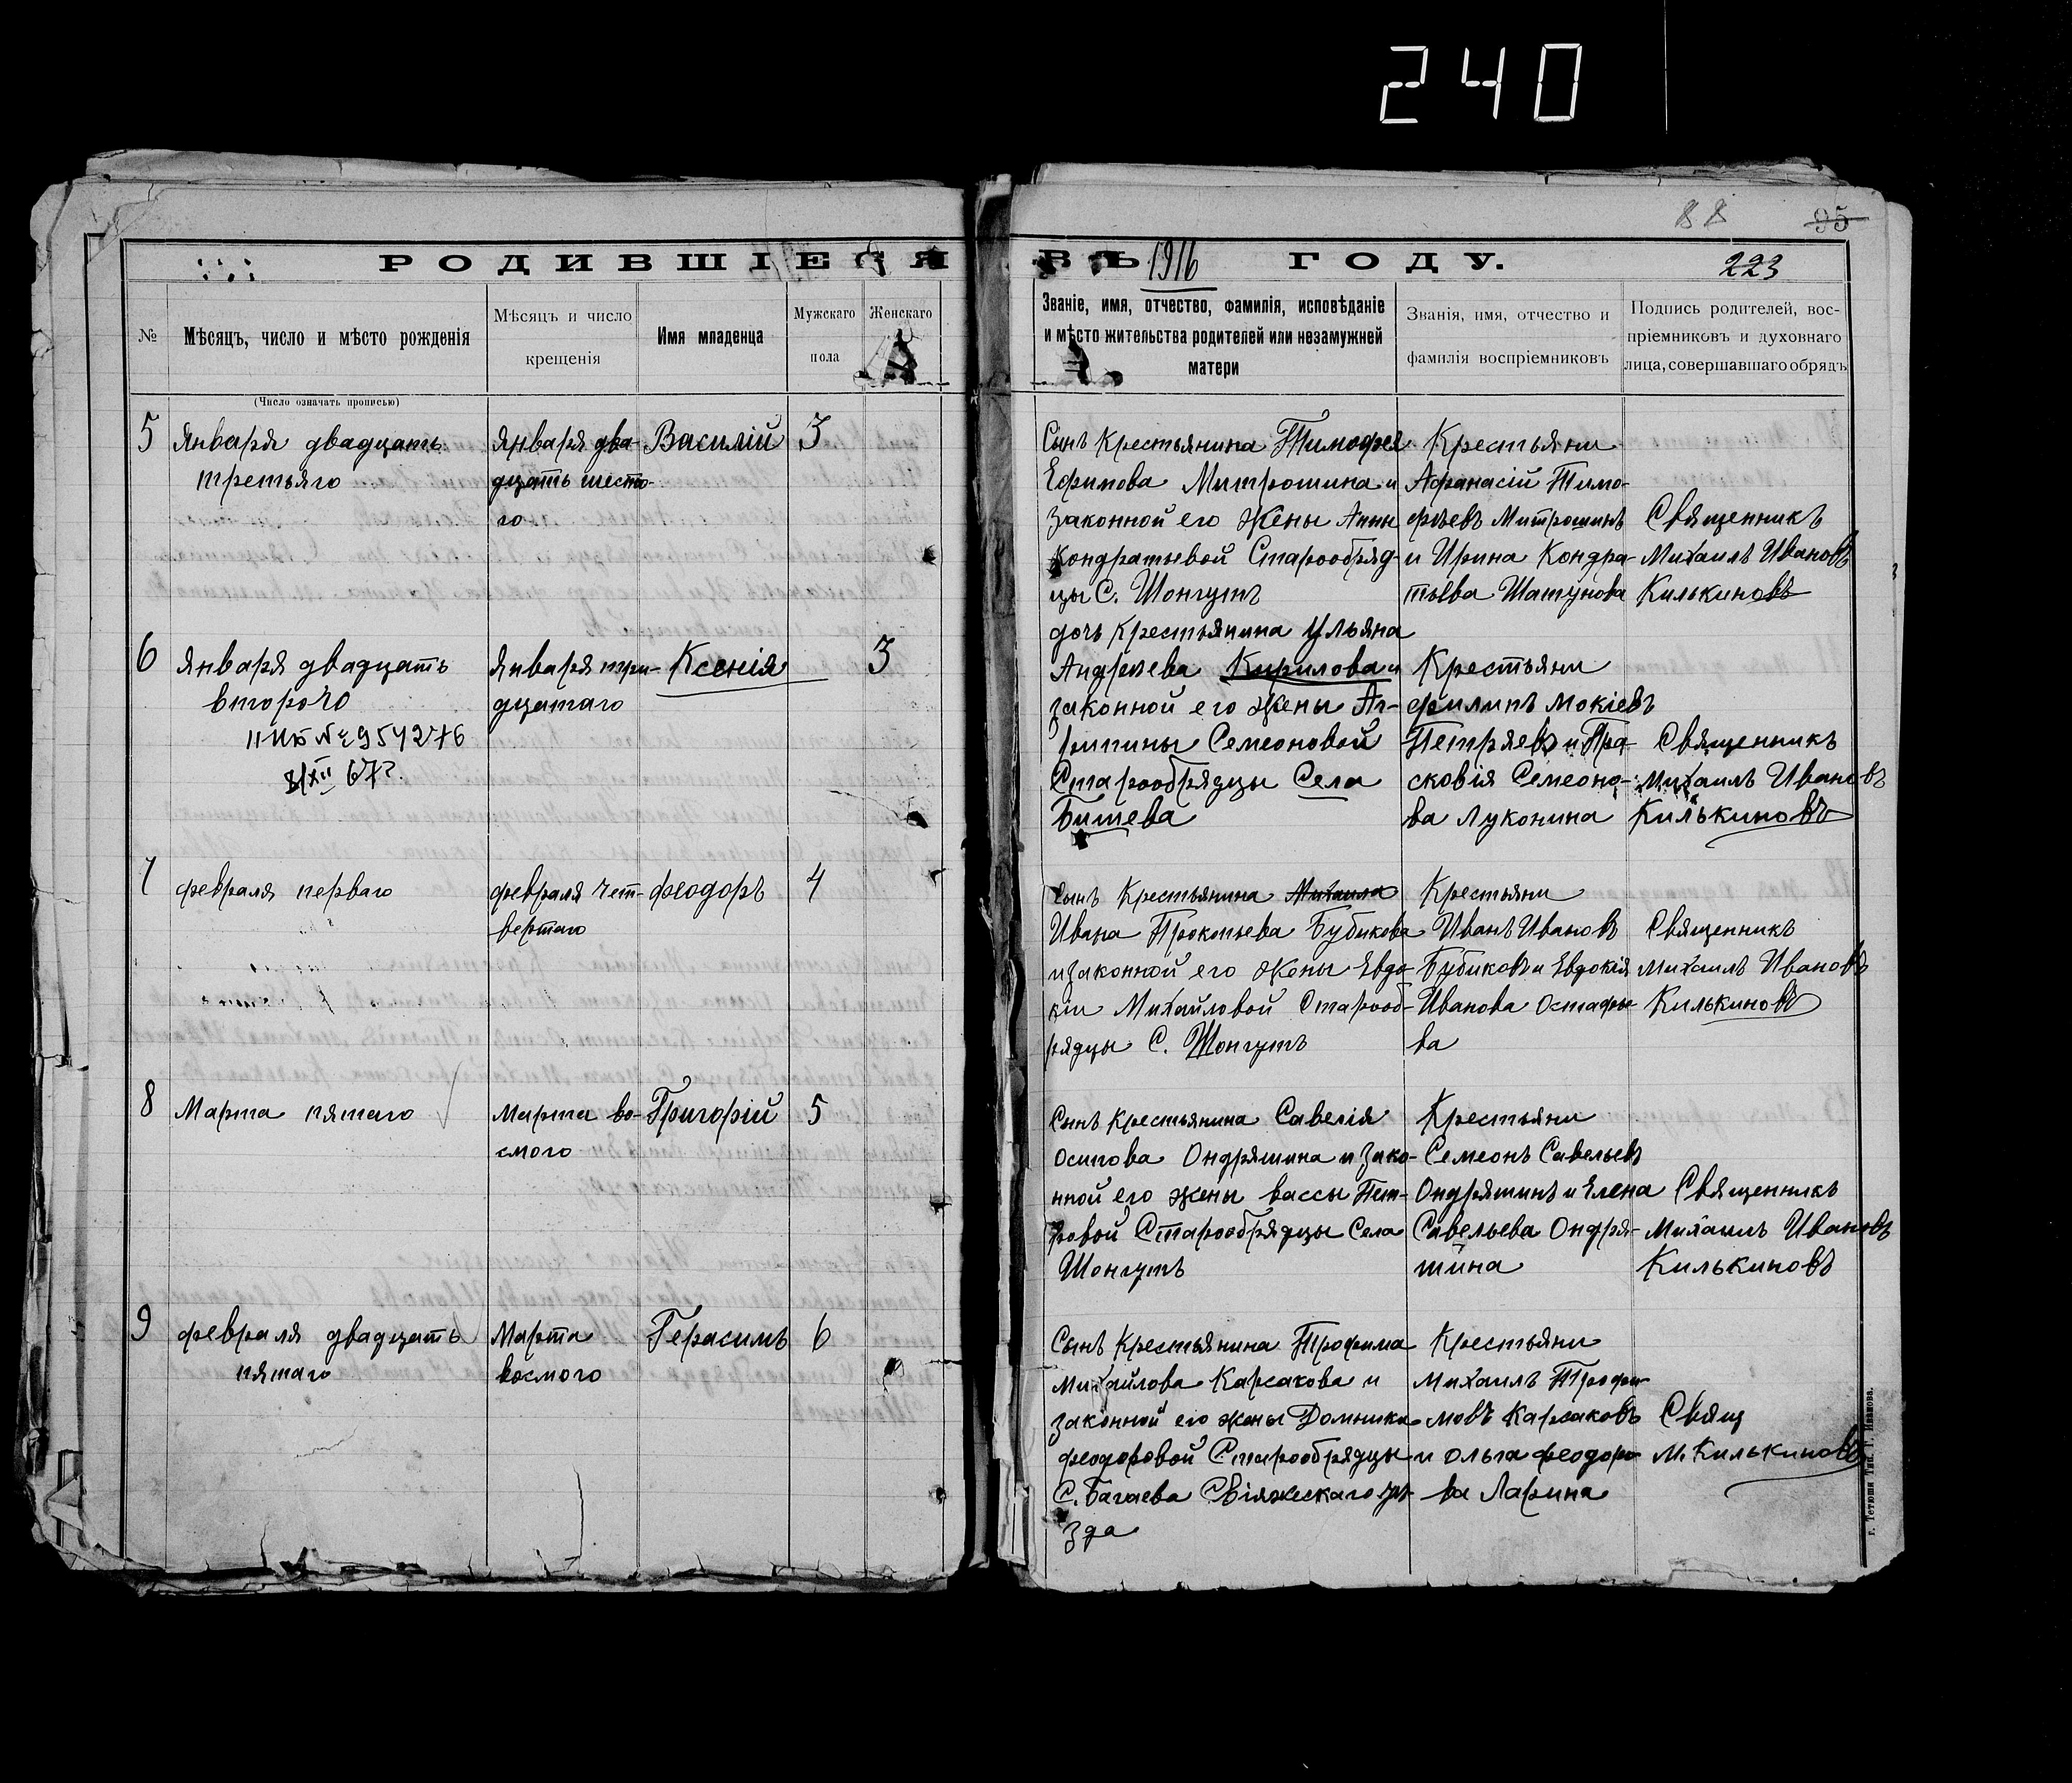 240
88
95
РОДИВШІЕСЯ ВЪ 1916 ГОДУ.
223
№
Мѣсяцъ, число и мѣсто рожденія
(Число означать прописью)
Мѣсяцъ и число
крещенія
Имя младенца
Мужскаго
Женскаго
пола
Званіе, имя, отчество, фамилія, исповѣданіе
и мѣсто жительства родителей или незамужней
матери
Званія, имя, отчество и
фамилія воспріемниковъ
Подпись родителей, вос-
пріемниковъ и духовнаго
лица, совершавшаго обрядъ
5
Января двадцать
третьяго
Января два-
дцать шесто-
го
Василій
3
Сынъ Крестьянина Тимофея
Ефимова Митрошина и
законной его жены Анны
Кондратьевой Старообряд-
цы С. Шонгутъ
Крестьяни
Афанасій Тимо-
фѣевъ Митрошинъ
и Ирина Кондра-
тьева Шатунова
Священникъ
Михаилъ Ивановъ
Килькиновъ
6
Января двадцать
второго
II ИЮ № 954276
8/XII 67г.
Января три-
дцатаго
Ксенія
3
дочь Крестьянина Ульяна
Андрѣева Кирилова и
законной его жены Аг-
рипины Семеоновой
Старообрядцы Села
Бишева
Крестьяни
филипъ Мокіевъ
Петряевъ и Пра-
сковія Семеоно-
ва Луконина
Священникъ
Михаилъ Ивановъ
Килькиновъ
7
февраля перваго
февраля чет-
вертаго
феодоръ
4
Сынъ Крестьянина Михаила
Ивана Прокопьева Бубикова
и законной его жены Евдо-
кіи Михайловой Старооб-
рядцы С. Шонгутъ
Крестьяни
Иванъ Ивановъ
Бубиковъ и Евдокія
Иванова Остафье
ва
Священникъ
Михаилъ Ивановъ
Килькиновъ
8
Марта пятаго
Марта во-
смого
Григорій
5
Сынъ Крестьянина Савелія
Осипова Ондряшина и зако-
нной его жены Вассы Пет-
ровой Старообрядцы Села
Шонгутъ
Крестьяни
Семеонъ Савельевъ
Ондряшинъ и Елена
Савельева Ондря-
шина
Священникъ
Михаилъ Ивановъ
Килькиновъ
9
февраля двадцать
пятаго
Марта
восмого
Герасимъ
6
Сынъ Крестьянина Трофима
Михайлова Карсакова и
законной его жены Домники
феодоровой Старообрядцы
С. Багаева Свіяжскаго уѣ-
зда
Крестьяни
Михаилъ Трофи-
мовъ Карсаковъ
и Ольга феодоро
ва Ларина
Свящ
М. Килькиновъ
г. Тетюши Тип. Г. Иванова.